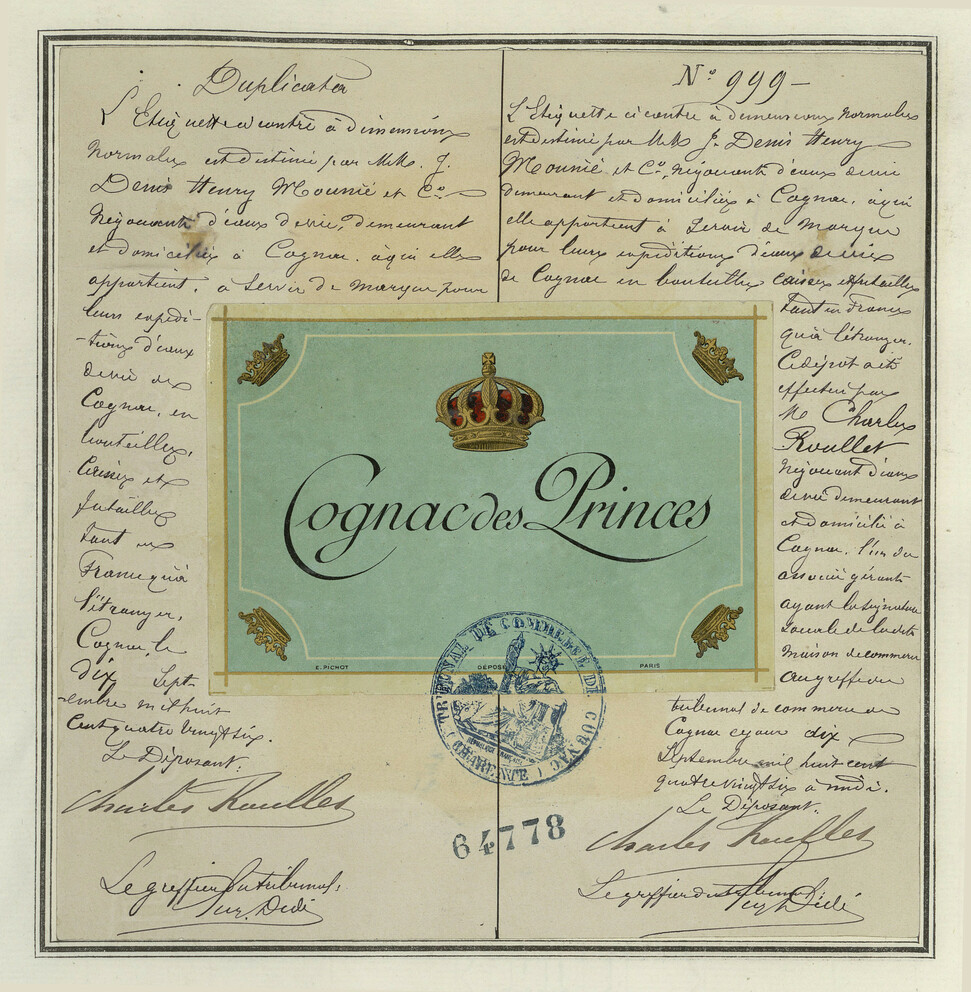 Duplicata
L'Etiquette ci contre à dimensions
normales est destinée par MM. J.
Denis Henry Mounié et Co
Négociants d'eaux de vie, demeurant
et domiciliés à Cognac, à qui elle
appartient, à servir de marque pour
leurs expédi-
-tions d'eaux
de vie de
Cognac, en
bouteilles,
caisses et
futailles
tant en
France qu'à
l'étranger,
Cognac, le
dix Sept-
-embre mil huit
cent quatre vingt six.
Le Déposant:
Charles Roullet
Le greffier du tribunal,
Didé
No 999
L'Etiquette ci contre à dimensions normales
est destinée par MM. J. Denis Henry
Mounié et Co, Négociants d'eaux de vie
demeurant et domiciliés à Cognac, à qui
elle appartient à Servir de Marque
pour leurs expéditions d'eaux de vie
de Cognac en bouteilles caisses et futailles
tant en France
qu'à l'étranger.
Ce dépôt a été
effectué par
M Charles
Roullet
Négociant d'eaux
de vie demeurant
et domicilié à
Cognac, l'un des
associés gérants
ayant la signature
sociale de la dite
maison de commerce
au greffe du
tribunal de commerce de
Cognac ce jour dix
Septembre mil huit cent
quatre vingt six à midi.
Le Déposant,
Charles Roullet
Le greffier du tribunal,
Didé
Cognac des Princes
E. PICHOT DÉPOSÉ PARIS
TRIBUNAL DE COMMERCE DE COGNAC
(CHARENTE)
RÉPUBLIQUE FRANÇAISE
64778